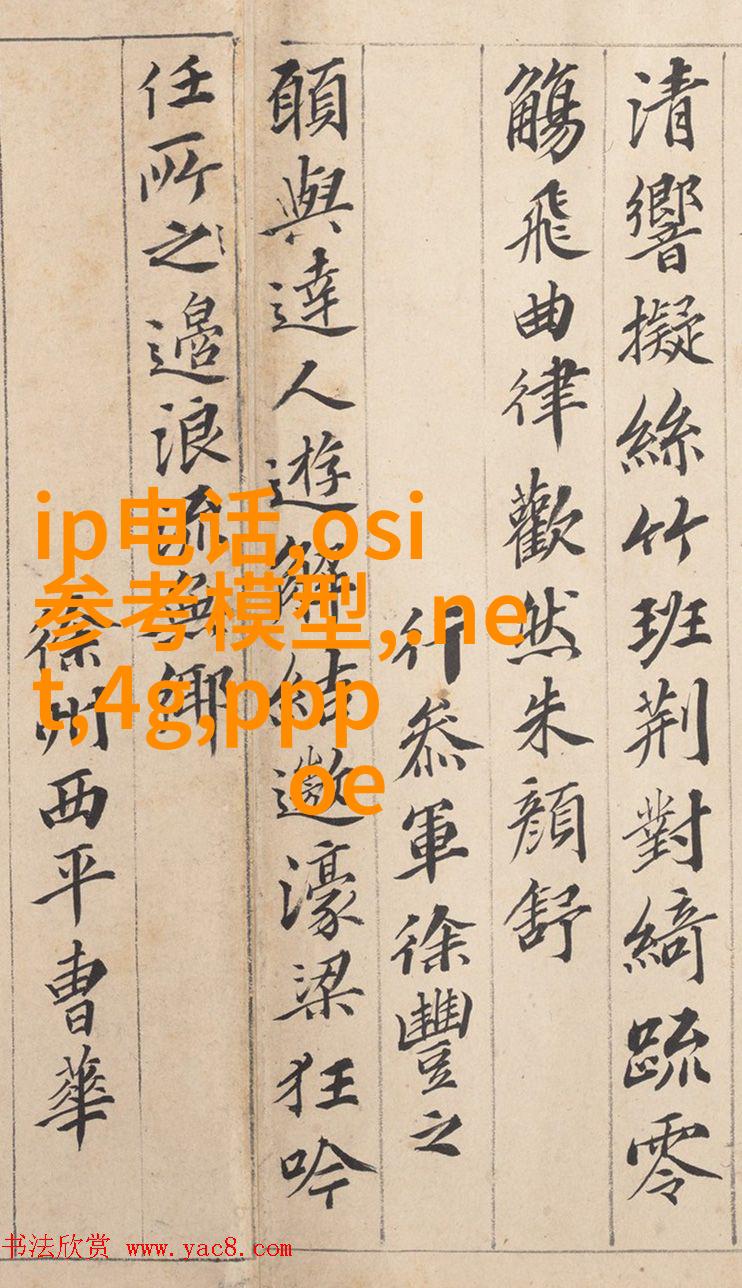 清響擬絲竹班荆對綺疏零
觴飛曲律歡然朱顔舒
行叅軍徐豐之
願與達人遊解結遨濠梁狂吟
任所之邉浪流無
徐州西平曹華
ip电话,osi
参考模型,.ne
t,4g,ppp
oe
书法欣赏 www.yac8.com